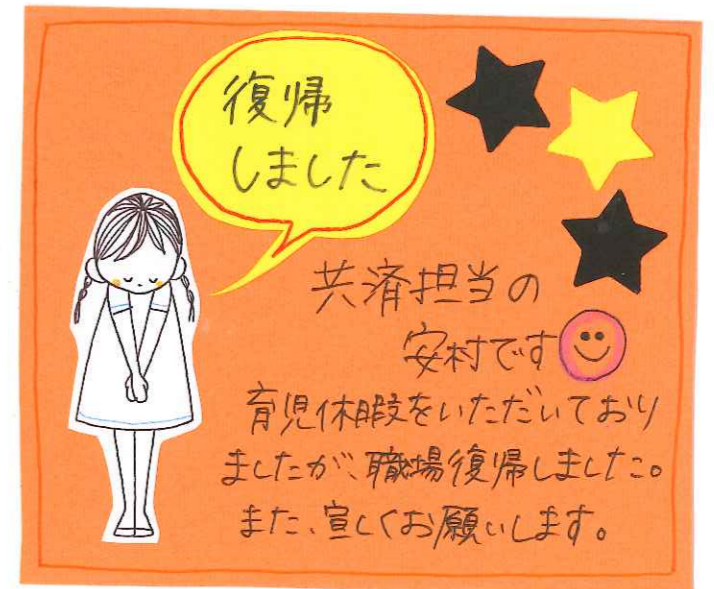 復帰
しました
共済担当の
安村です
育児休暇をいただいており
ましたが、職場復帰しました。
また、宜しくお願いします。